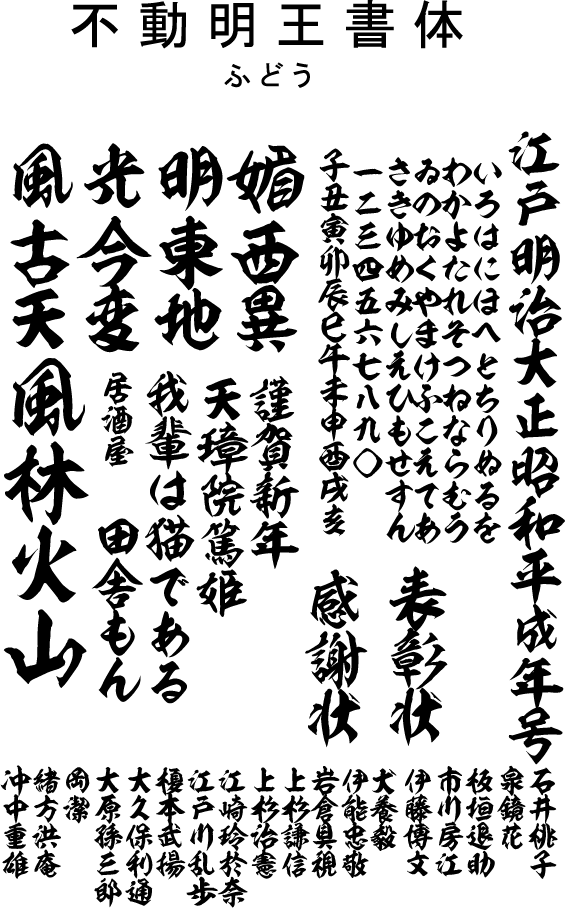 不動明王書体
ふどう
江戸明治大正昭和平成年号
いろはにほへとちりぬるを
わかよたれそつねならむう
ゐのおくやまけふこえてあ
さきゆめみしゑひもせすん
一二三四五六七八九〇
子丑寅卯辰巳午未申酉戌亥
表彰状
感謝状
媚西異
明東地
光今変
風古天
謹賀新年
天璋院篤姫
我輩は猫である
居酒屋
田舎もん
風林火山
石井桃子
泉鏡花
板垣退助
市川房江
伊藤博文
犬養毅
伊能忠敬
岩倉具視
上杉謙信
上杉治憲
江崎玲於奈
江戸川乱歩
榎本武揚
大久保利通
大原孫三郎
岡潔
緒方洪庵
沖中重雄